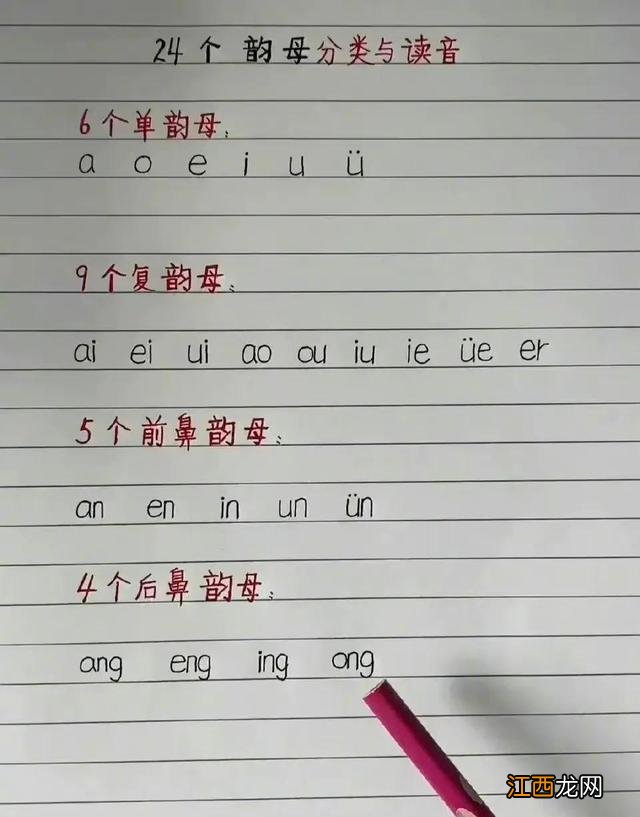 24个 韵母分类与读音
6个单韵母:
a o e i u ü
9个复韵母:
ai ei ui ao ou iu ie üe er
5个前鼻韵母:
an en in un ün
4个后鼻韵母:
ang eng ing ong
江西龙网